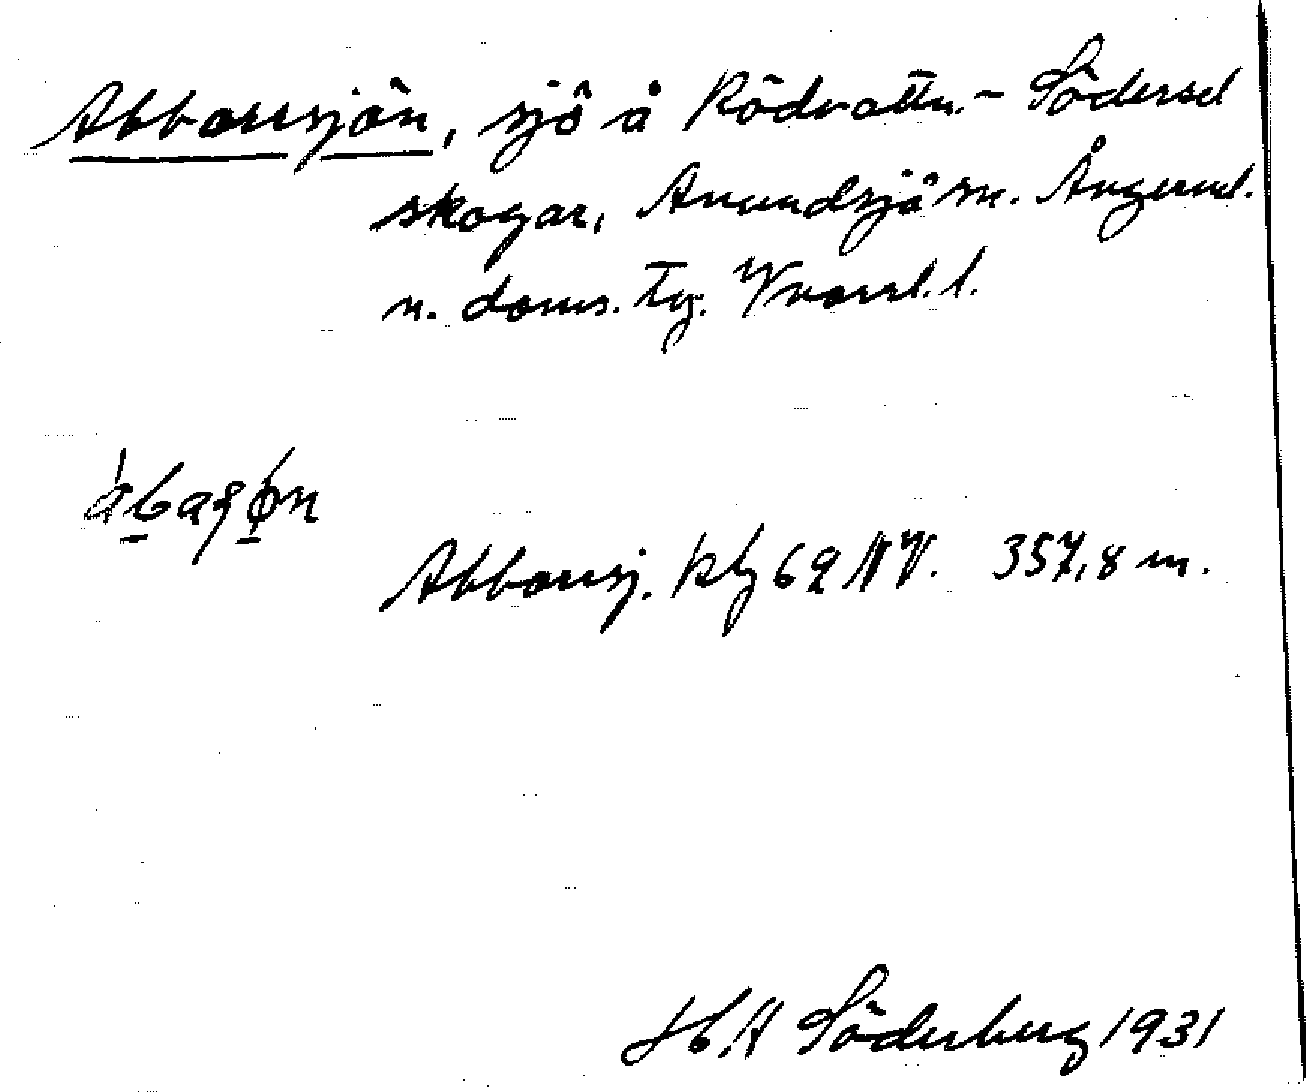 Abborrsjön, sjö å Rödvattn.- Södersel
skogar, Anundsjö sn. Ångerml.
n. doms. Tg. Vnorrl. l.
Abborrsj. kbl 62 NV. 357,8 m.
H.A Söderberg 1931